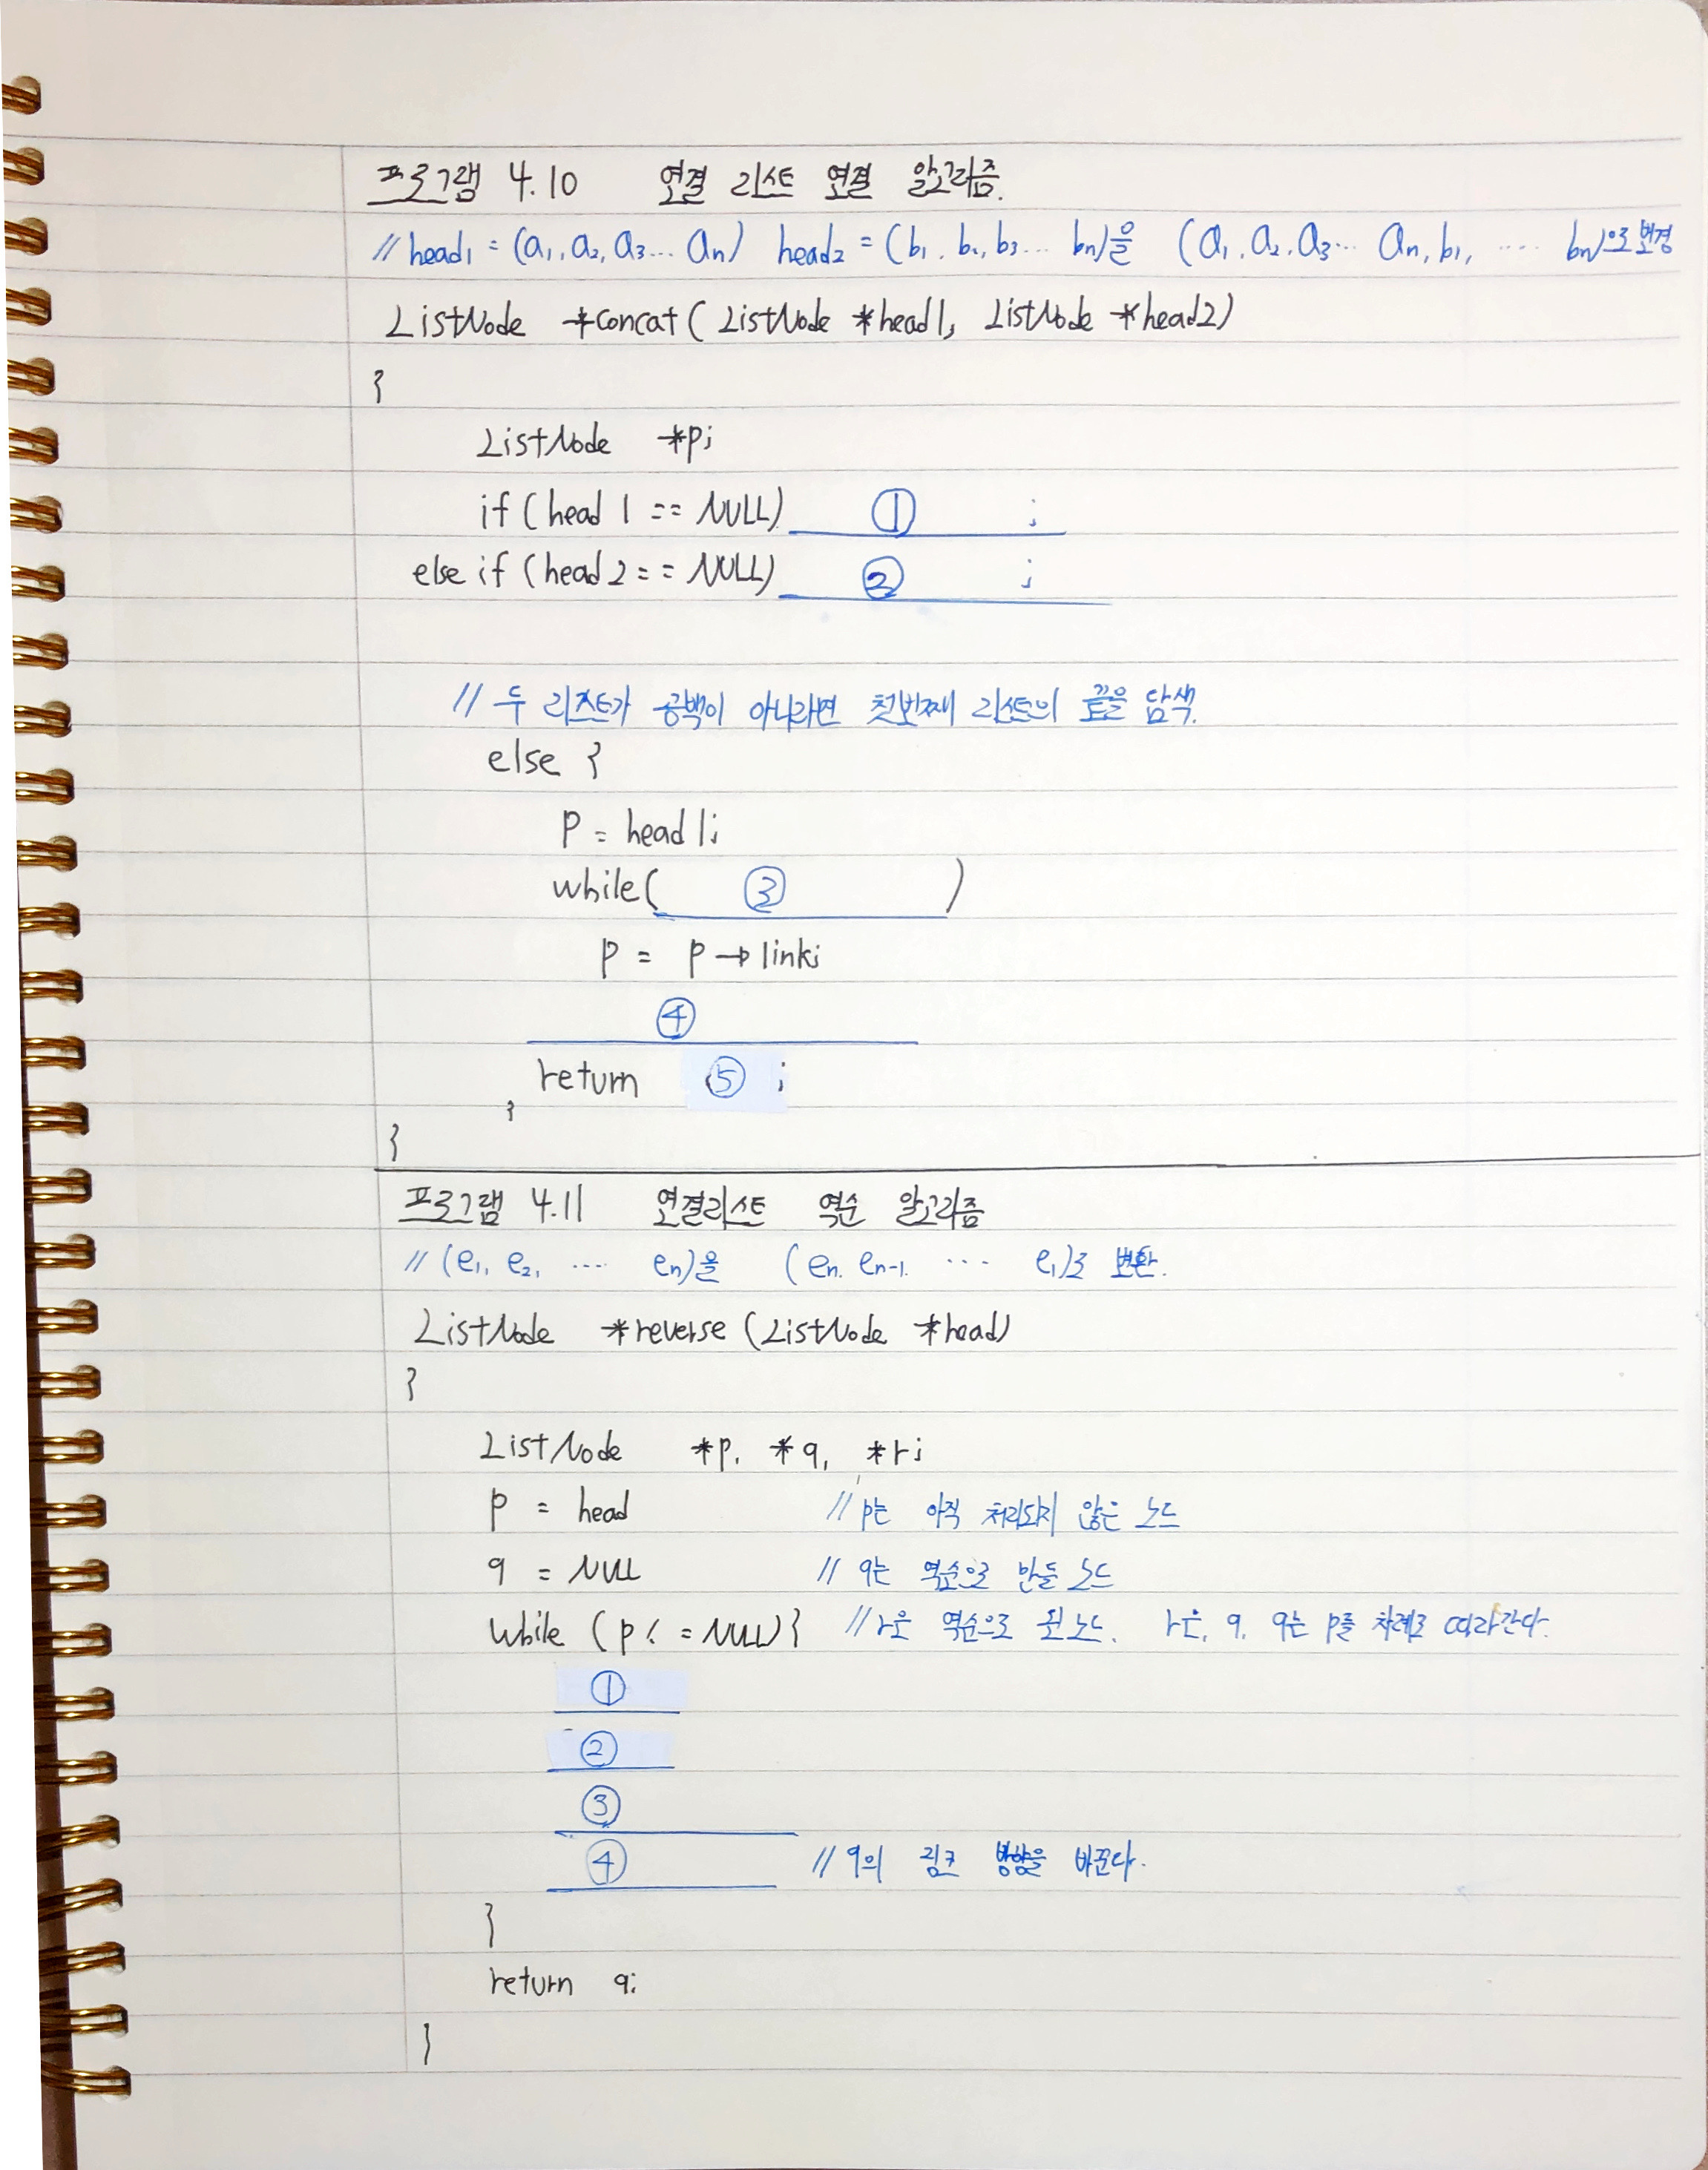 프로그램 4.10 연결 리스트 연결 알고리즘.
// head1 = (a1, a2, a3... an) head2 = (b1, b2, b3... bn)을 (a1, a2, a3... an, b1, .... bn)으로 변경
ListNode *concat( ListNode *head1, ListNode *head2)
{
ListNode *p;
if (head1 == NULL) ① ;
else if (head2 == NULL) ② ;
// 두 리스트가 공백이 아니라면 첫번째 리스트의 끝을 탐색.
else {
p = head1;
while( ③ )
p = p→link;
④
return ⑤ ;
}
}
프로그램 4.11 연결리스트 역순 알고리즘
// (e1, e2, .... en)을 (en, en-1, .... e1)로 변환.
ListNode *reverse (ListNode *head)
{
ListNode *p, *q, *r;
p = head // p는 아직 처리되지 않은 노드
q = NULL // q는 역순으로 만들 노드
while (p != NULL) { // r은 역순으로 된 노드. r은, q, q는 p를 차례로 따라간다.
①
②
③
④ // q의 링크 방향을 바꾼다.
}
return q;
}